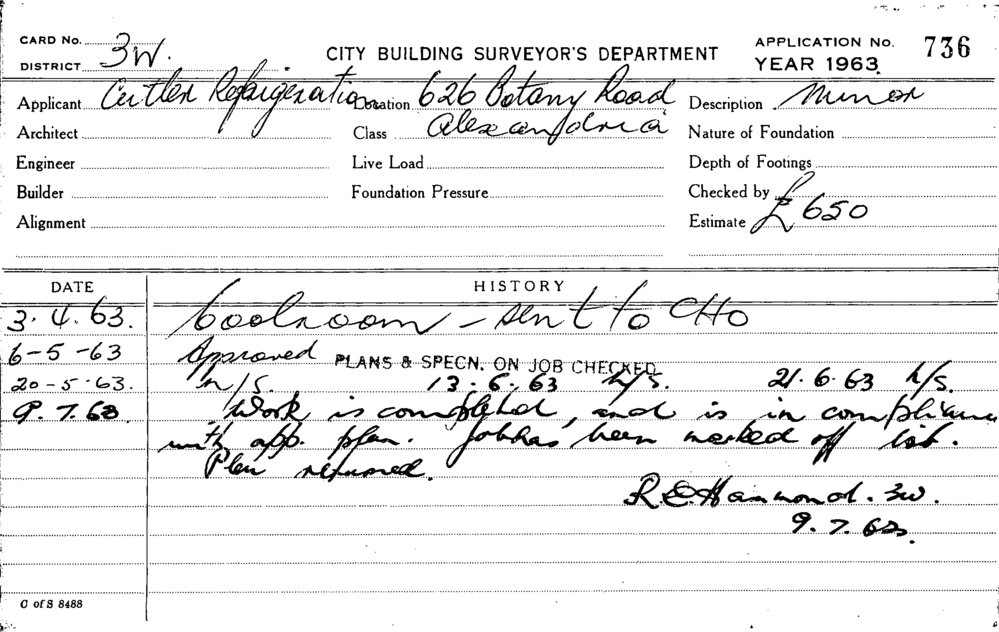 CARD No. 3W.
DISTRICT
CITY BUILDING SURVEYOR'S DEPARTMENT
APPLICATION No. 736
YEAR 1963.
Applicant Cutler Refrigeration Location 626 Botany Road Description Minor
Architect Class Alexandria Nature of Foundation
Engineer Live Load Depth of Footings
Builder Foundation Pressure Checked by
Alignment Estimate £650
DATE HISTORY
3.4.63. Coolroom - sent to CHO
6-5-63 Approved PLANS & SPECN. ON JOB CHECKED.
20-5-63. N/S. 13.6.63 N/S. 21.6.63 N/S.
9.7.63. Work is completed, and is in compliance
with app. plan. Job has been marked off list.
Plan returned.
R.E. Hammond. 3W.
9.7.63.
C of S 8488